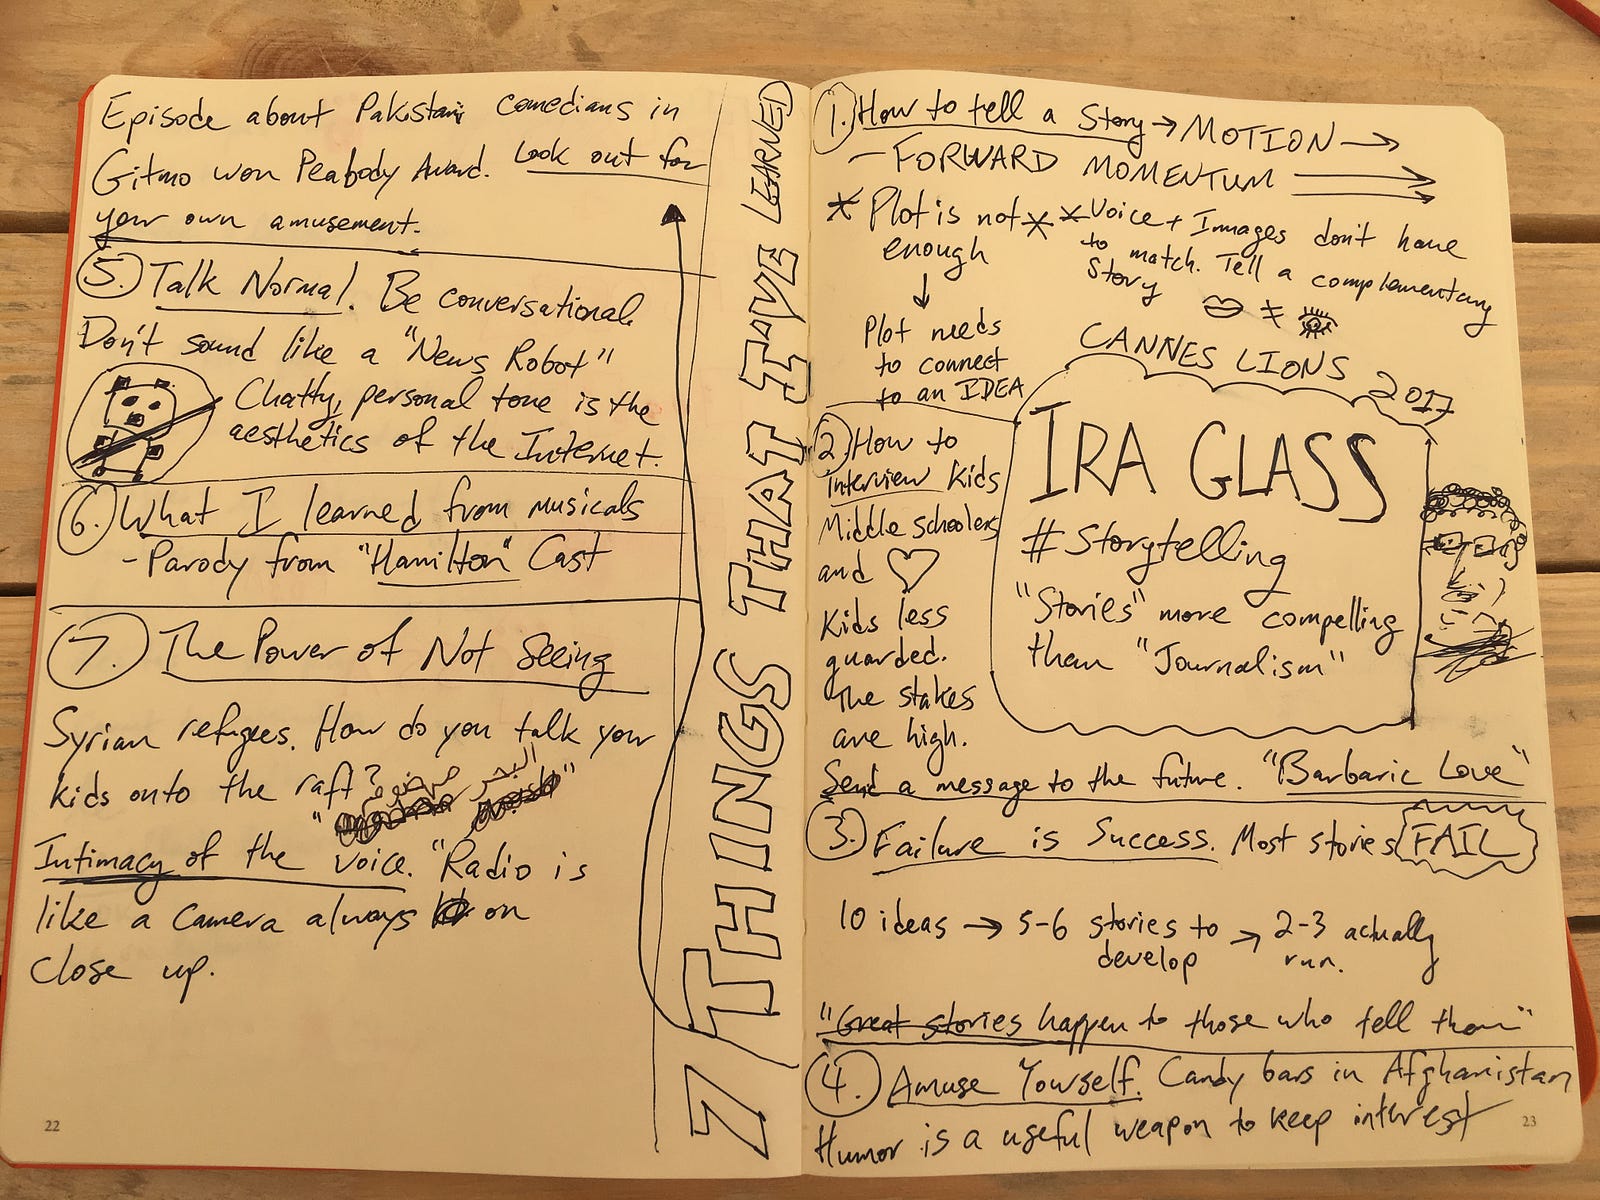 7 THINGS THAT I'VE LEARNED
CANNES LIONS 2017
IRA GLASS
#Storytelling
"Stories" more compelling
than "Journalism"
1. How to tell a Story → MOTION →
- FORWARD MOMENTUM
* Plot is not *
enough
↓
Plot needs
to connect
to an IDEA
* Voice + Images don't have
to match. Tell a complementary
Story
≠
2. How to
Interview Kids
Middle schoolers
and ♡
Kids less
guarded.
The stakes
are high.
Send a message to the future. "Barbaric Love"
3. Failure is Success. Most stories FAIL
10 ideas → 5-6 stories to → 2-3 actually
develop run.
"Great stories happen to those who tell them"
4. Amuse Yourself. Candy bars in Afghanistan
Humor is a useful weapon to keep interest
23
Episode about Pakistani comedians in
Gitmo won Peabody Award. Look out for
your own amusement.
5. Talk Normal. Be conversational.
Don't sound like a "News Robot"
Chatty, personal tone is the
aesthetics of the Internet.
6. What I learned from musicals
- Parody from "Hamilton" Cast
7. The Power of Not Seeing
Syrian refugees. How do you talk your
kids onto the raft?
البحر
Intimacy of the voice. "Radio is
like a camera always on
close up.
22